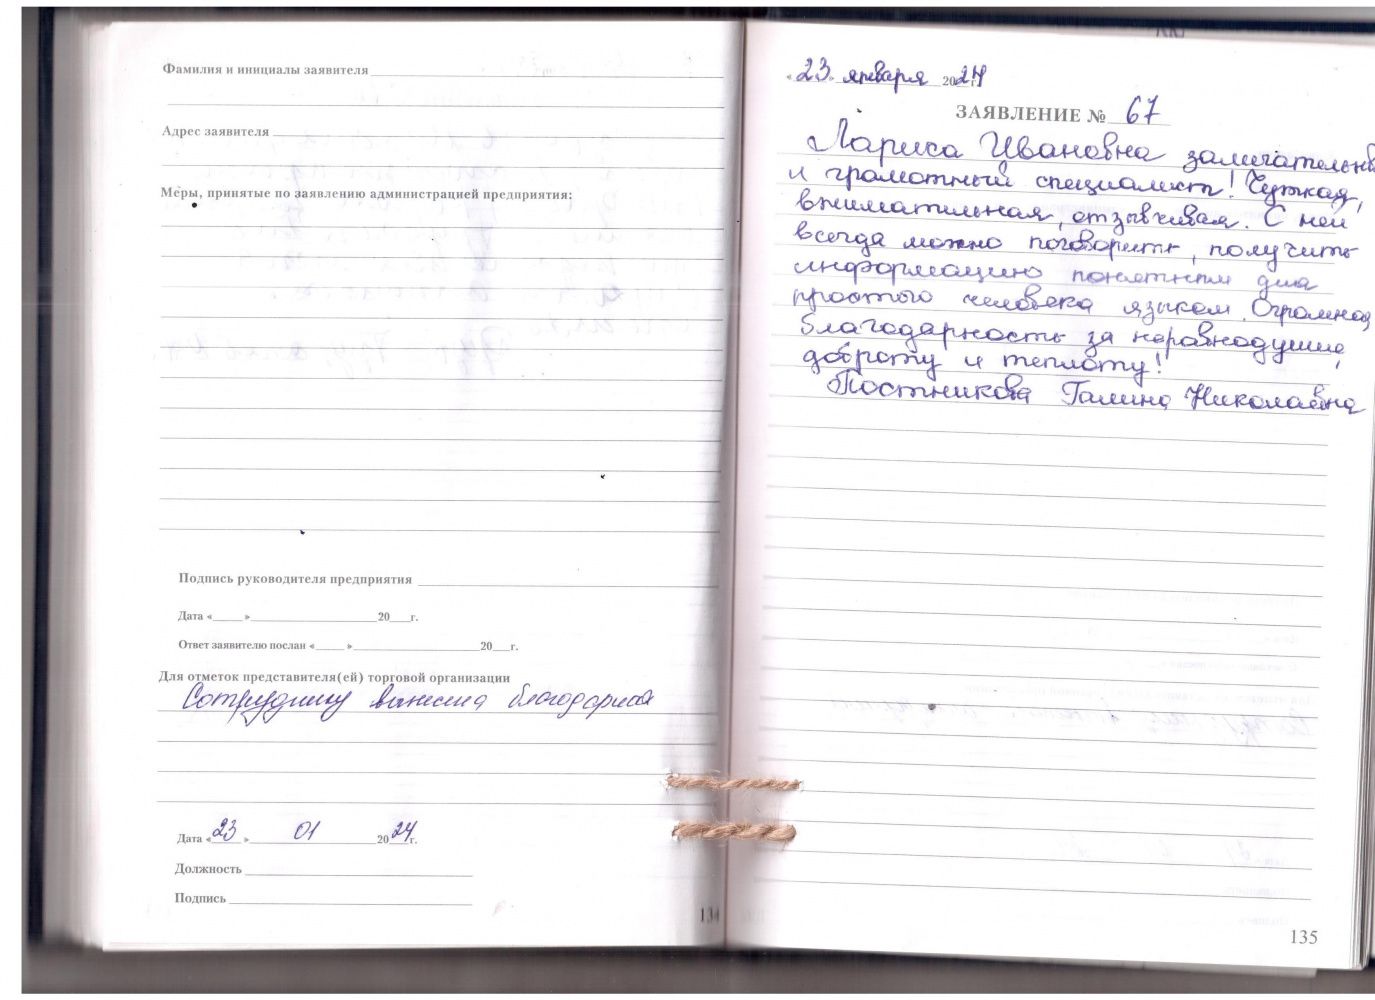 Фамилия и инициалы заявителя
Адрес заявителя
Меры, принятые по заявлению администрацией предприятия:
Подпись руководителя предприятия
Дата «____» ____ 20__г.
Ответ заявителю послан «____» ____ 20__г.
Для отметок представителя(ей) торговой организации
Сотруднику вынесена
Дата «23» 01 2024г.
Должность
Подпись
134
«23» января 2024
ЗАЯВЛЕНИЕ № 67
Лариса Ивановна замечательны
и грамотный специалист! Чуткая,
внимательная, отзывчивая. С ней
всегда можно поговорить, получить
информацию понятным для
простого человека языком. Огромная
благодарность за неравнодушие,
доброту и теплоту!
Постникова Галина Николаевна
135